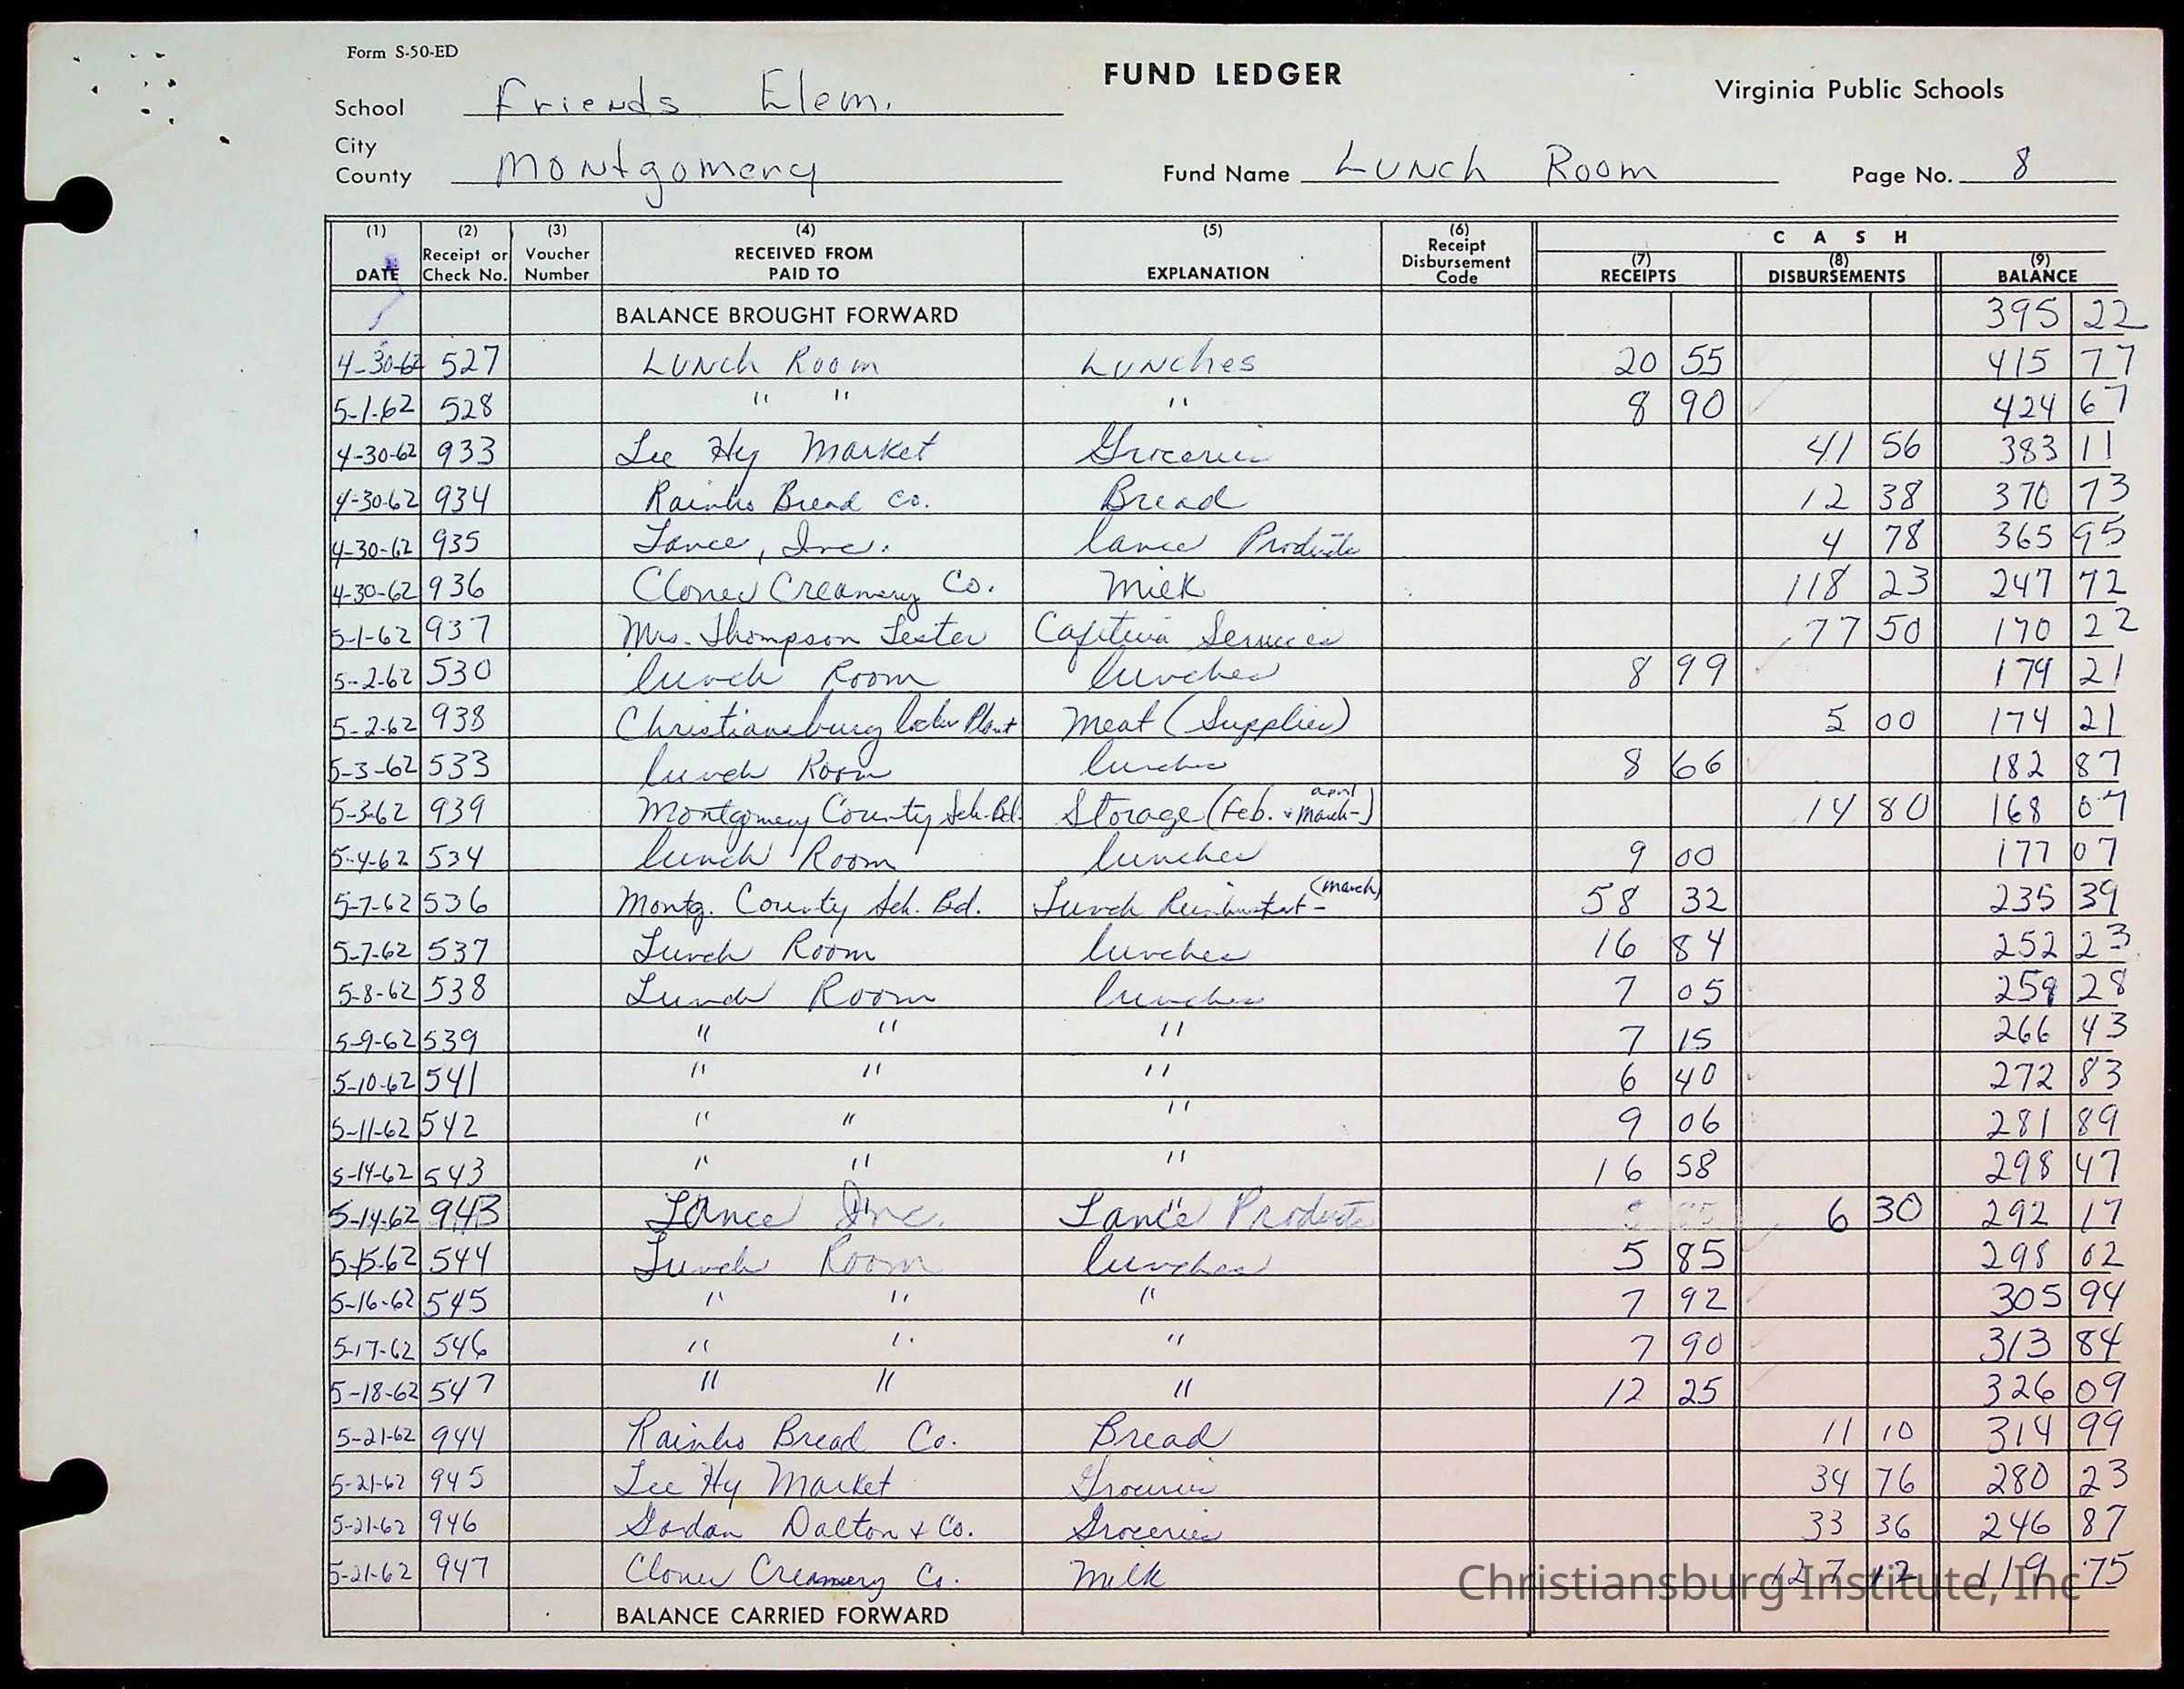 Form S-50-ED
FUND LEDGER
Virginia Public Schools
School Friends Elem.
City
County Montgomery Fund Name Lunch Room Page No. 8
(1) DATE (2) Receipt or Check No. (3) Voucher Number (4) RECEIVED FROM PAID TO (5) EXPLANATION (6) Receipt Disbursement Code CASH (7) RECEIPTS (8) DISBURSEMENTS (9) BALANCE
BALANCE BROUGHT FORWARD 395 22
4-30-62 527 Lunch Room Lunches 20 55 415 77
5-1-62 528 " " " 8 90 424 67
4-30-62 933 Lee Hy Market Groceries 41 56 383 11
4-30-62 934 Rainbo Bread Co. Bread 12 38 370 73
4-30-62 935 Lance, Inc. Lance Products 4 78 365 95
4-30-62 936 Clover Creamery Co. Milk 118 23 247 72
5-1-62 937 Mrs. Thompson Lester Cafeteria Services 77 50 170 22
5-2-62 530 Lunch Room lunches 8 99 179 21
5-2-62 938 Christiansburg locker Plant Meat (Supplies) 5 00 174 21
5-3-62 533 lunch Room lunches 8 66 182 87
5-3-62 939 Montgomery County Sch. Bd. Storage (Feb. + March - april) 14 80 168 07
5-4-62 534 lunch Room lunches 9 00 177 07
5-7-62 536 Montg. County Sch. Bd. Lunch - (March) 58 32 235 39
5-7-62 537 Lunch Room lunches 16 84 252 23
5-8-62 538 Lunch Room lunches 7 05 259 28
5-9-62 539 " " " 7 15 266 43
5-10-62 541 " " " 6 40 272 83
5-11-62 542 " " " 9 06 281 89
5-14-62 543 " " " 16 58 298 47
5-14-62 943 Lance Inc. Lance Products 6 30 292 17
5-15-62 544 Lunch Room lunches 5 85 298 02
5-16-62 545 " " " 7 92 305 94
5-17-62 546 " " " 7 90 313 84
5-18-62 547 " " " 12 25 326 09
5-21-62 944 Rainbo Bread Co. Bread 11 10 314 99
5-21-62 945 Lee Hy Market Groceries 34 76 280 23
5-21-62 946 Dalton & Co. Groceries 33 36 246 87
5-21-62 947 Clover Creamery Co. Milk 127 12 119 75
BALANCE CARRIED FORWARD
Christiansburg Institute, Inc